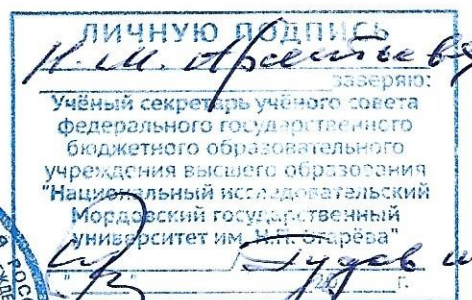 ЛИЧНУЮ ПОДПИСЬ
Н. М. Арсентьева
заверяю:
Учёный секретарь учёного совета
федерального государственного
бюджетного образовательного
учреждения высшего образования
"Национальный исследовательский
Мордовский государственный
университет им. Н.П. Огарёва"
"20 г.